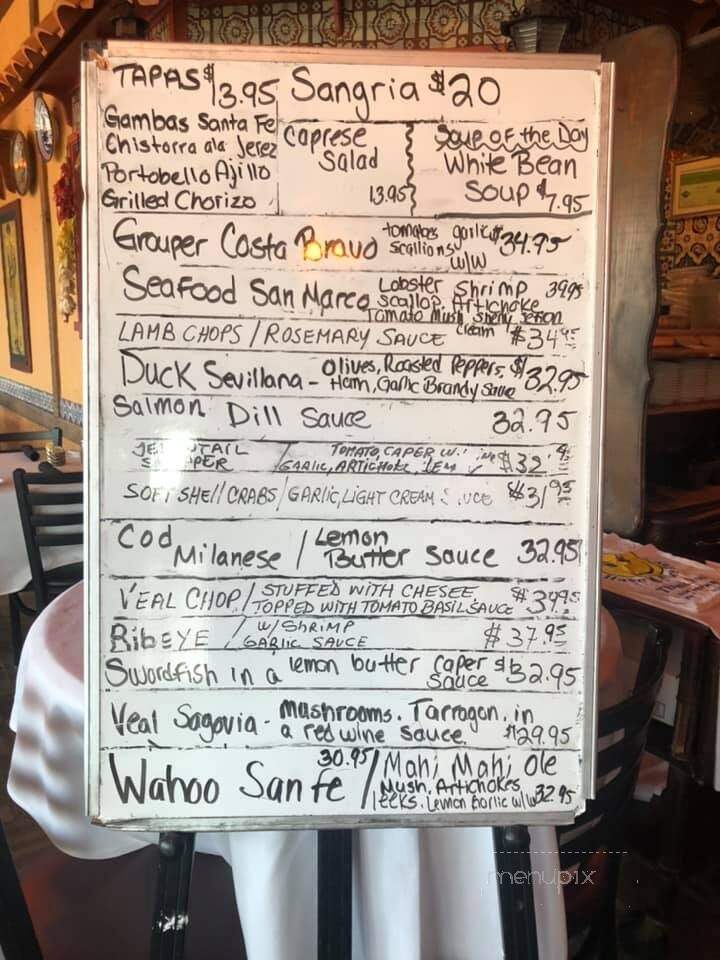 TAPAS $13.95 Sangria $20
Gambas Santa Fe
Chistorra ala Jerez
Portobello Ajillo
Grilled Chorizo
Caprese
Salad
13.95
Soup of the Day
White Bean
Soup $7.95
Grouper Costa Bravo tomatoes garlic $34.95
scallions
w/w
Seafood San Marco Lobster Shrimp 39.95
scallop, Artichoke
Tomato Mush Sherry
Cream
LAMB CHOPS / ROSEMARY SAUCE $34.95
Duck Sevillana - Olives, Roasted Peppers, $32.95
Ham, Garlic Brandy Sauce
Salmon Dill Sauce 32.95
TAIL / TOMATO, CAPER W. $32
GARLIC, ARTICHOKE,
SOFT SHELL CRABS / GARLIC, LIGHT CREAM $31.95
Cod Milanese / Lemon
Butter Sauce 32.95
VEAL CHOP / STUFFED WITH CHESEE $39.95
TOPPED WITH TOMATO BASIL SAUCE
RibEYE / W/ SHRIMP $37.95
GARLIC SAUCE
Swordfish in a lemon butter caper $32.95
Sauce
Veal Sagovia - Mushrooms. Tarragon. in
a red wine sauce $29.95
Wahoo San Fe 30.95 / Mahi Mahi Ole
Mush. Artichokes
leeks. Lemon Garlic w/w 32.95
menupix